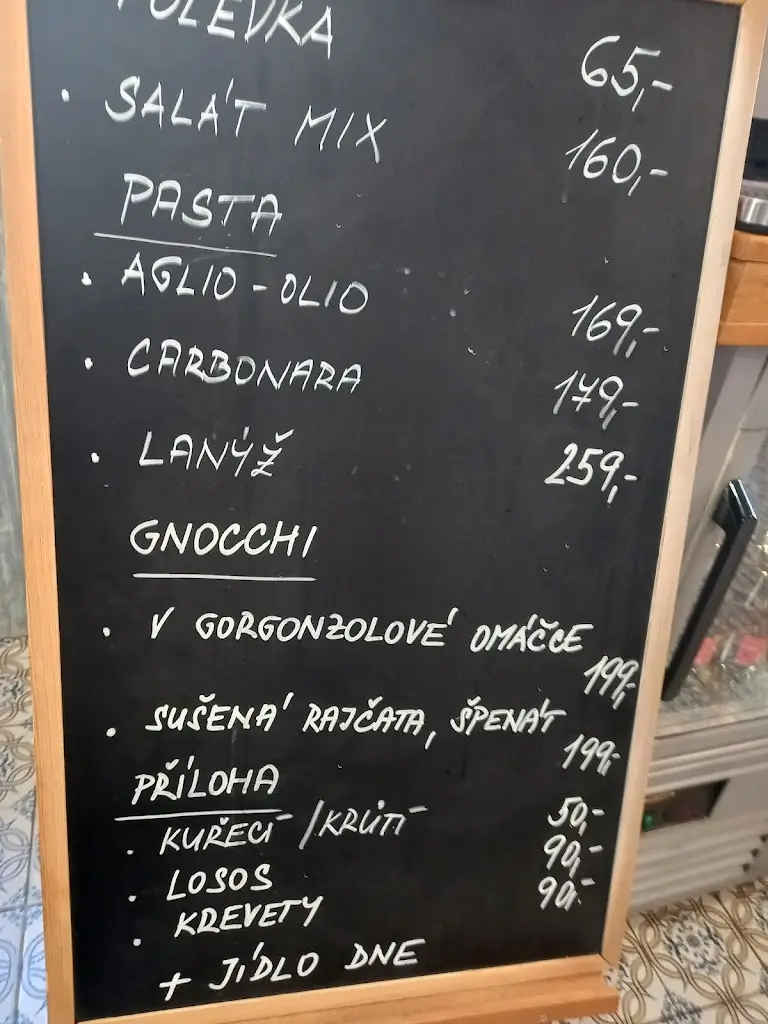 POLÉVKA 65,-
• SALÁT MIX 160,-
PASTA
• AGLIO-OLIO 169,-
• CARBONARA 179,-
• LANÝŽ 259,-
GNOCCHI
• V GORGONZOLOVÉ OMÁČCE
199,-
• SUŠENÁ RAJČATA, ŠPENÁT
199,-
PŘÍLOHA
• KUŘECÍ /KRŮTÍ 50,-
• LOSOS 90,-
• KREVETY 90,-
+ JÍDLO DNE